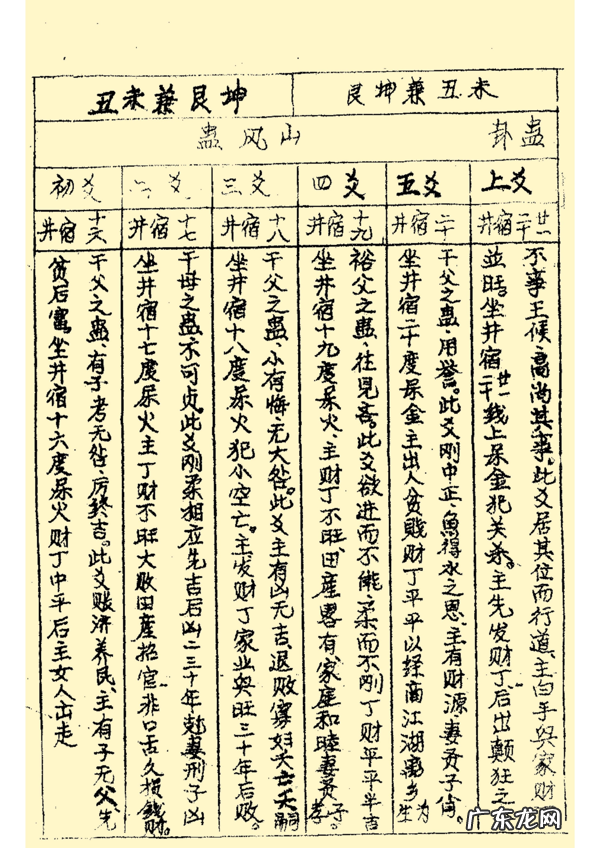 未丑兼坤艮
坤艮兼未丑
蛊卦
山风蛊
上爻
五爻
四爻
三爻
二爻
初爻
井宿二十廿一
井宿二十
井宿十九
井宿十八
井宿十七
井宿十六
不事王候、高尚其事。此爻居其位而行道、主白手兴家财
並旺。坐井宿二十廿一线上屎金犯关杀。主先发财丁后出颠狂之
干父之蛊、用誉。此爻刚中正、魚得水之恩、主有财源妻贤子肖
坐井宿二十度屎金主出人贫賎财丁平平以经商江湖离乡为生
裕父之蛊、往见吝。此爻欲进而不能、柔而不刚丁财平平半吉
坐井宿十九度屎火、主财丁不旺、田産畧有、家庭和睦妻贤子孝
干父之蛊、小有悔、无大咎。此爻主有凶无吉、退败寡妇夭亡夭嗣
坐井宿十八度屎火犯小空亡。主发财丁家业兴旺三十年后败。
干母之蛊不可贞。此爻刚柔相应先吉后凶二三十年尅妻刑子凶
坐井宿十七度屎火主丁财不旺大败田産招官非口舌久损錢财。
干父之蛊、有子考无咎、厉终吉。此爻赈济养民、主有子无父、先
贫后富。坐井宿十六度屎火财丁中平后主女人出走
广东龙网